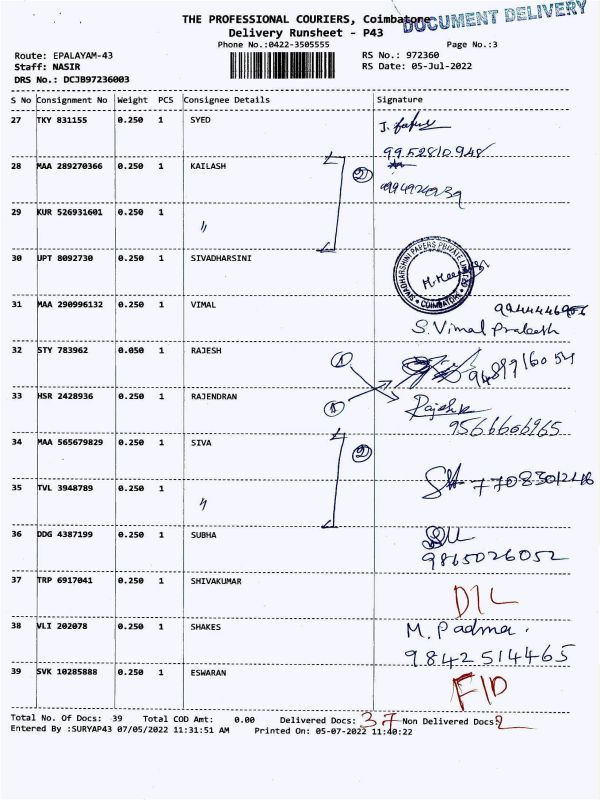 THE PROFESSIONAL COURIERS, Coimbatore
DOCUMENT DELIVERY
Delivery Runsheet - P43
Phone No.:0422-3505555
Page No.:3
Route: EPALAYAM-43
RS No.: 972360
Staff: NASIR
RS Date: 05-Jul-2022
DRS No.: DCJB97236003
S No Consignment No Weight PCS Consignee Details Signature
27 TKY 831155 0.250 1 SYED
9952810948
28 MAA 289270366 0.250 1 KAILASH
2
29 KUR 526931601 0.250 1 〃
30 UPT 8092730 0.250 1 SIVADHARSINI
SIVADHARSHINI PAPERS PRIVATE LIMITED
COIMBATORE
31 MAA 290996132 0.250 1 VIMAL
S. Vimal Prakash
32 STY 783962 0.050 1 RAJESH
33 HSR 2428936 0.250 1 RAJENDRAN
Rajesh
9566606965
34 MAA 565679829 0.250 1 SIVA
2
35 TVL 3948789 0.250 1 〃
36 DDG 4387199 0.250 1 SUBHA
9865026052
37 TRP 6917041 0.250 1 SHIVAKUMAR
D1L
38 VLI 202078 0.250 1 SHAKES M. Padma.
9842514465
39 SVK 10285888 0.250 1 ESWARAN
F1D
Total No. Of Docs: 39 Total COD Amt: 0.00 Delivered Docs: 37 Non Delivered Docs: 2
Entered By :SURYAP43 07/05/2022 11:31:51 AM Printed On: 05-07-2022 11:40:22